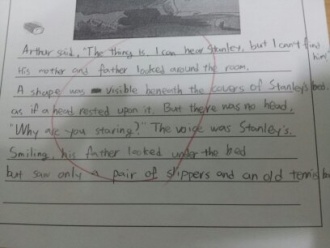 Arthur said, "The thing is, I can hear Stanley, but I can't find him"
His mother and father looked around the room.
A shape was visible beneath the covers of Stanley's bed.
as if a head rested upon it. But there was no head.
"Why are you staring?" The voice was Stanley's.
Smiling, his father looked under the bed
but saw only a pair of slippers and an old tennis